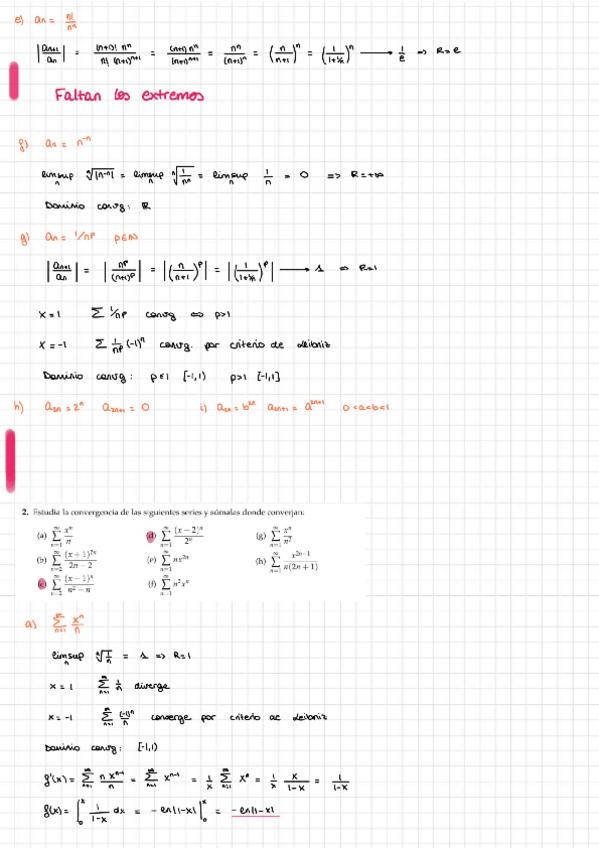 e) an = n!/nⁿ
|an+1/an| = (n+1)! nⁿ / n! (n+1)ⁿ⁺¹ = (n+1) nⁿ / (n+1)ⁿ⁺¹ = nⁿ/(n+1)ⁿ = (n/(n+1))ⁿ = (1/(1+1/n))ⁿ → 1/e ⇒ R=e
Faltan los extremos
f) an = n⁻ⁿ
limsup n ⁿ√|n⁻ⁿ| = limsup n ⁿ√(1/nⁿ) = limsup n 1/n = 0 ⇒ R=+∞
Dominio convg: ℝ
g) an = 1/nᵖ p∈ℕ
|an+1/an| = |nᵖ/(n+1)ᵖ| = |(n/(n+1))ᵖ| = |(1/(1+1/n))ᵖ| → 1 ⇒ R=1
x=1 Σ 1/nᵖ convg ⇔ p>1
x=-1 Σ 1/nᵖ (-1)ⁿ convg. por criterio de leibniz
Dominio convg: p∈1 [-1,1) p>1 [-1,1]
h) a2n = 2ⁿ a2n+1 = 0 i) a2n = b²ⁿ a2n+1 = a²ⁿ⁺¹ 0<a<b<1
2. Estudia la convergencia de las siguientes series y súmalas donde converjan:
(a) ∞Σn=1 xⁿ/n (d) ∞Σn=1 (x−2)ⁿ/2ⁿ (g) ∞Σn=1 xⁿ/n²
(b) ∞Σn=2 (x+1)²ⁿ/(2n−2) (e) ∞Σn=1 nx²ⁿ (h) ∞Σn=1 x²ⁿ⁻¹/(n(2n+1))
(c) ∞Σn=2 (x−1)ⁿ/(n²−n) (f) ∞Σn=1 n²xⁿ
a) ∞Σn=1 xⁿ/n
limsup n ⁿ√(1/n) = 1 ⇒ R=1
x=1 ∞Σn=1 1/n diverge
x=-1 ∞Σn=1 (-1)ⁿ/n converge por criterio de leibniz
Dominio convg: [-1,1)
f'(x) = ∞Σn=1 n xⁿ⁻¹/n = ∞Σn=1 xⁿ⁻¹ = 1/x ∞Σn=1 xⁿ = 1/x x/(1-x) = 1/(1-x)
f(x) = ∫₀ˣ 1/(1-x) dx = -ln|1-x| |₀ˣ = -ln|1-x|